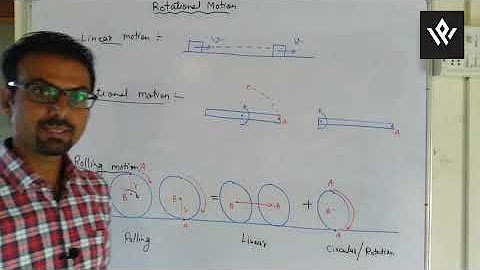 Rotational Motion
Linear motion :-
v v
tational motion :-
A A
Rolling motion
A
B r B r A = B A + B A A
Rolling Linear Circular/Rotation